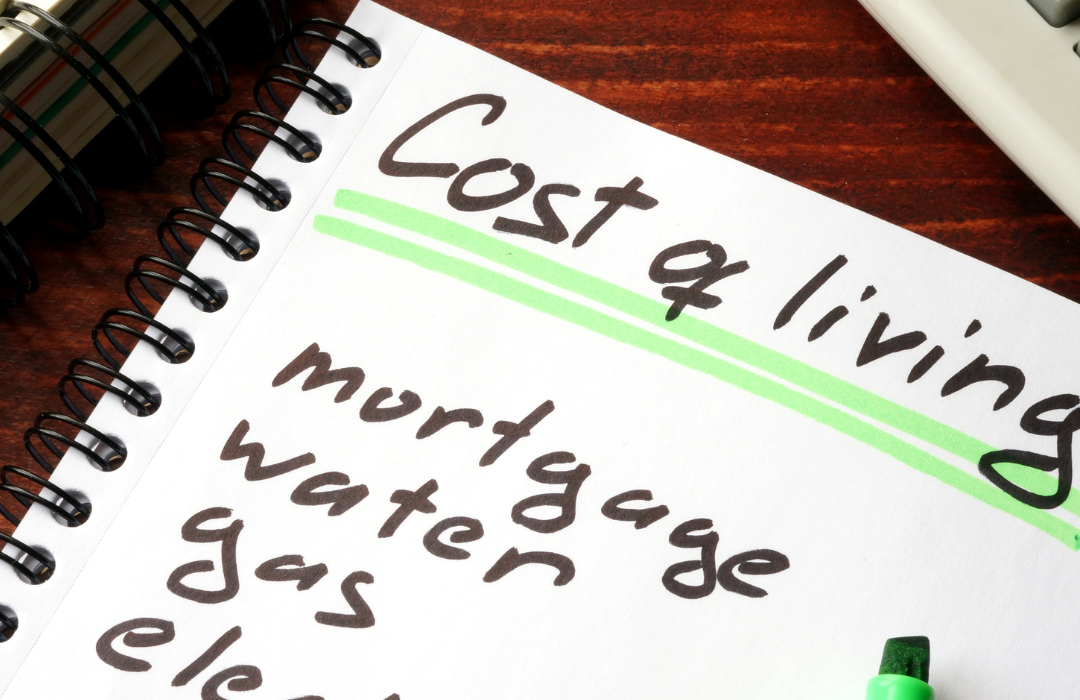 Cost of living
mortgage
water
gas